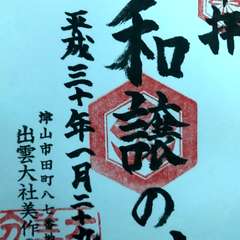 拝
和譲の
平成三十年一月二十九
津山市田町八七番地
出雲大社美作